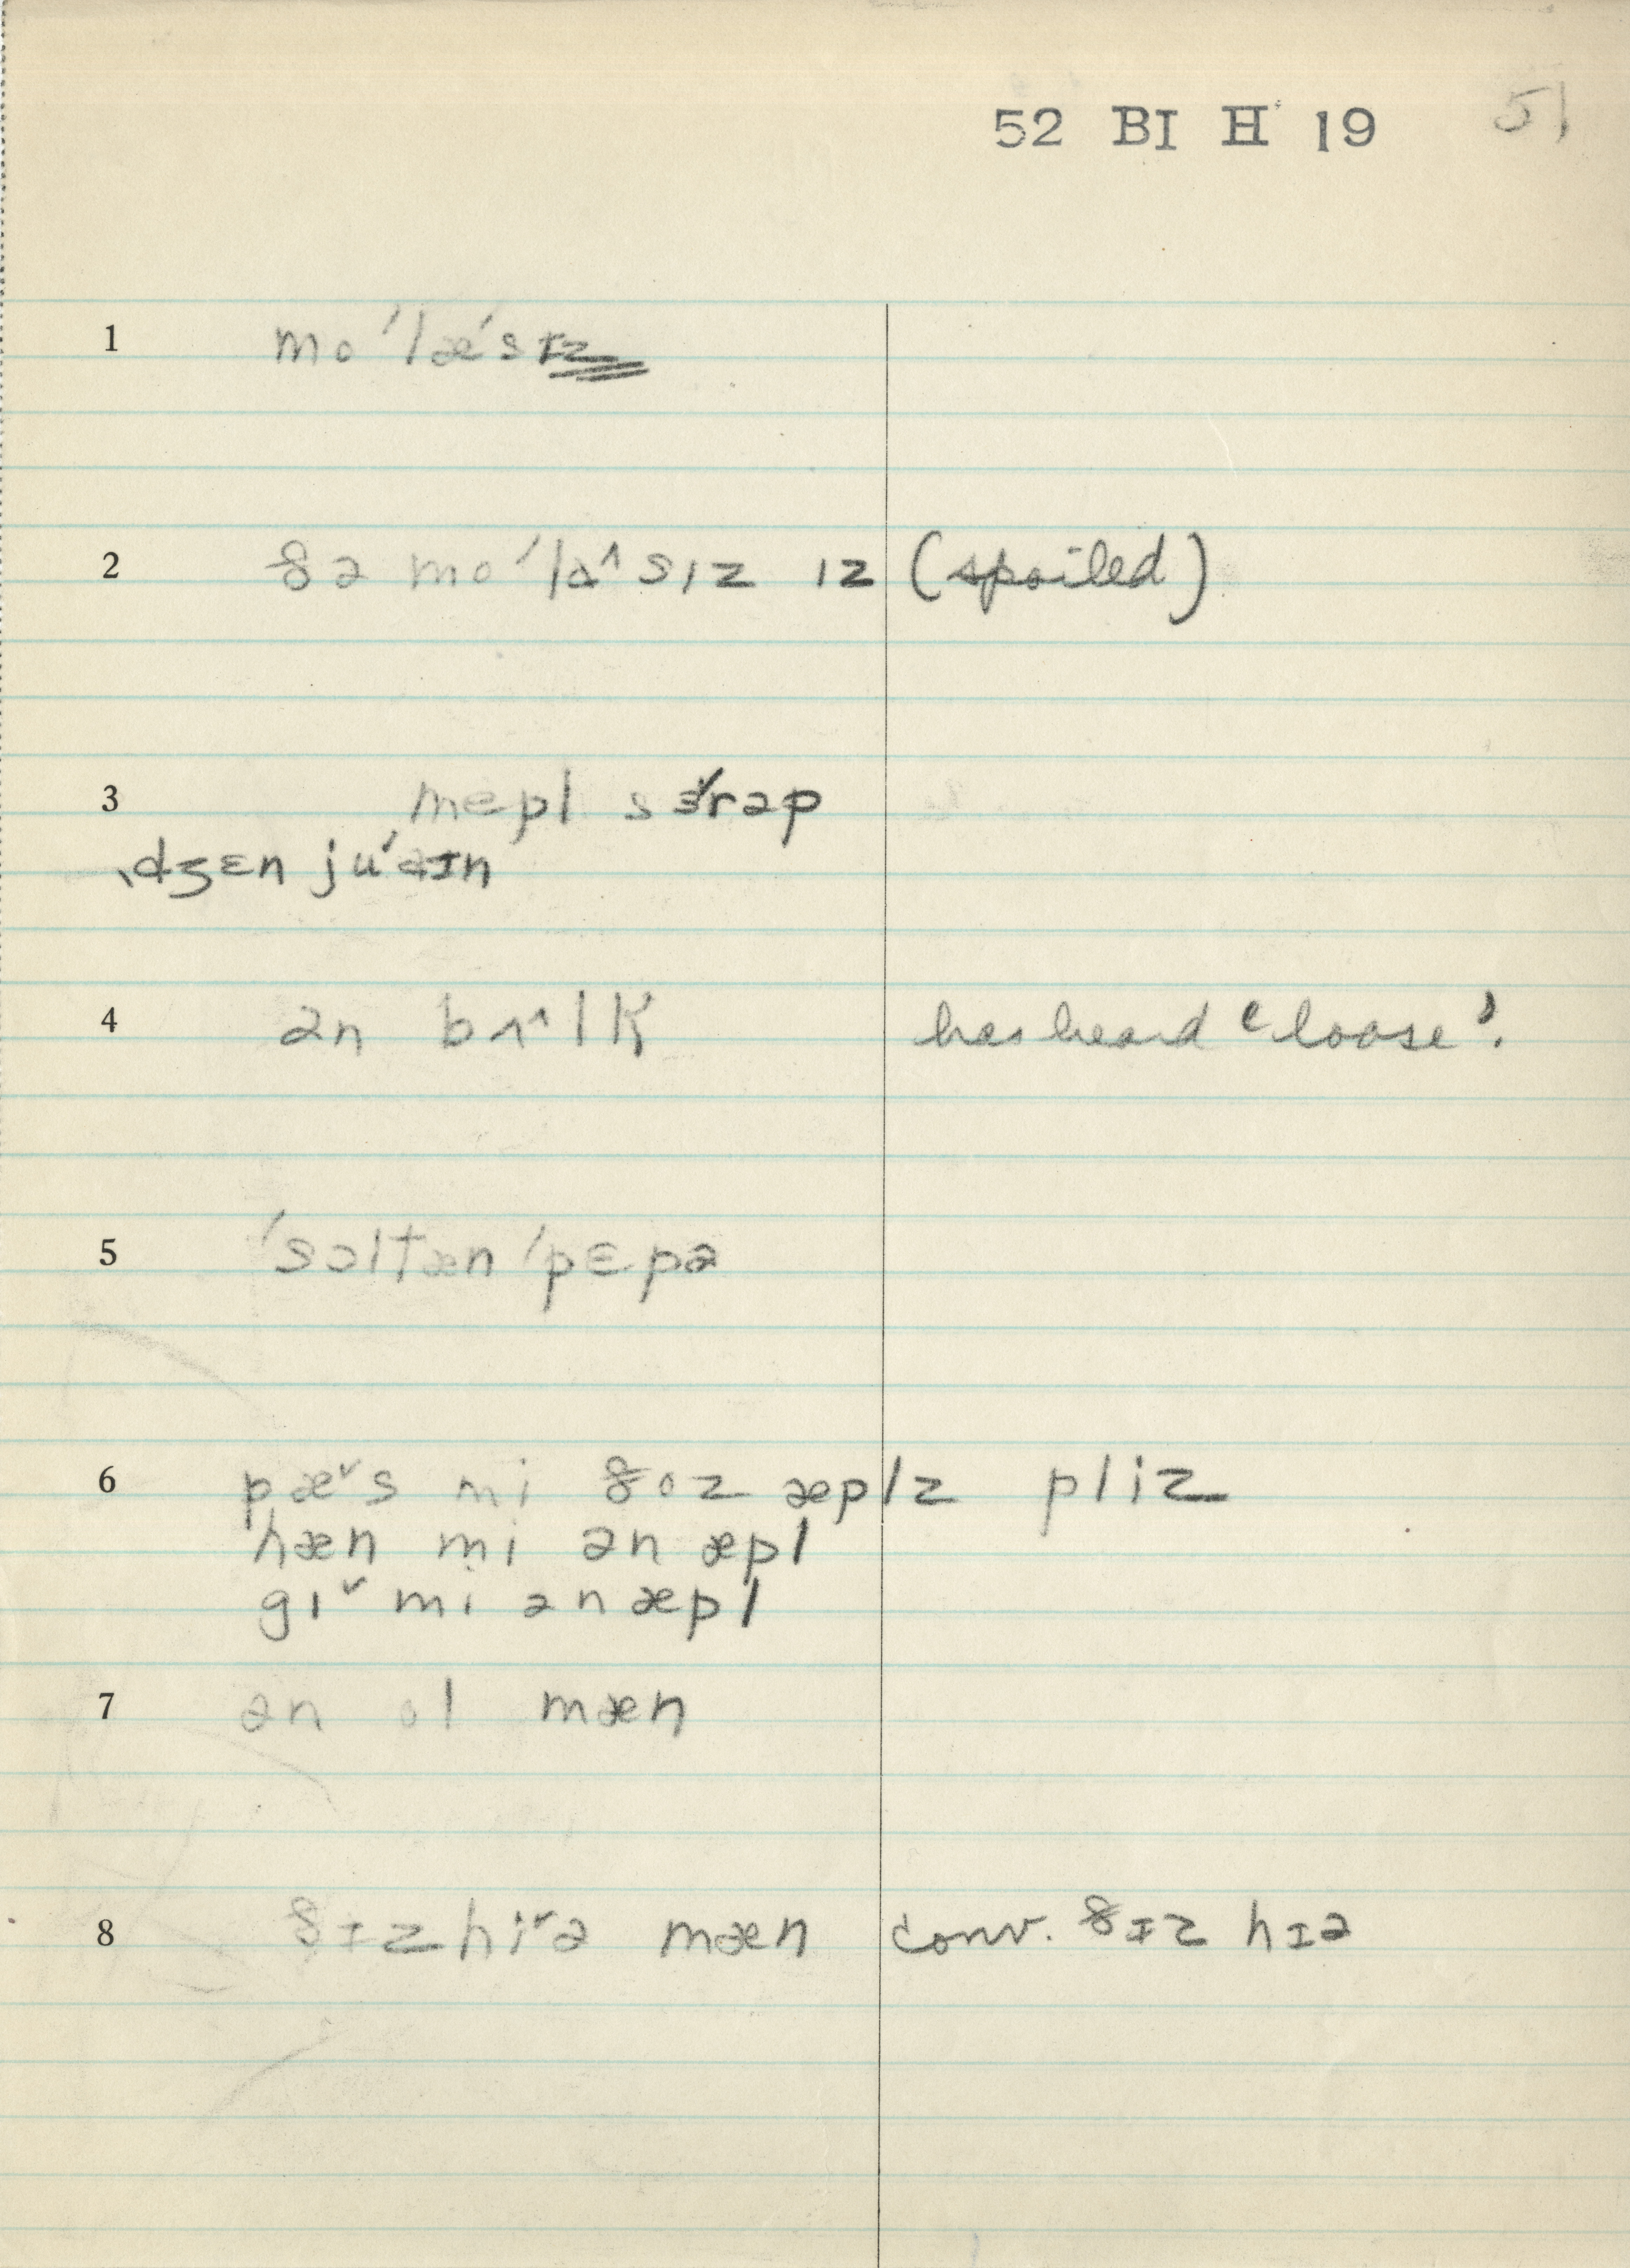 52 BI H 19 51
1 moˈlæ´sɪz
2 ðə moˈla^sɪz ɪz (spoiled)
3 mepl sɜ˞rəp
ˌdʒɛn juˈaɪn
4 ən bʌ^lk has heard 'loose'.
5 ˈsɔltæn ˈpɛpə
6 pæ˅s mi ðoz æplz pliz
hæn mi ən æpl
gɪ˅ mi ən æpl
7 ən ol mæn
8 ðɪz hi˅ə mæn conv. ðɪz hɪə